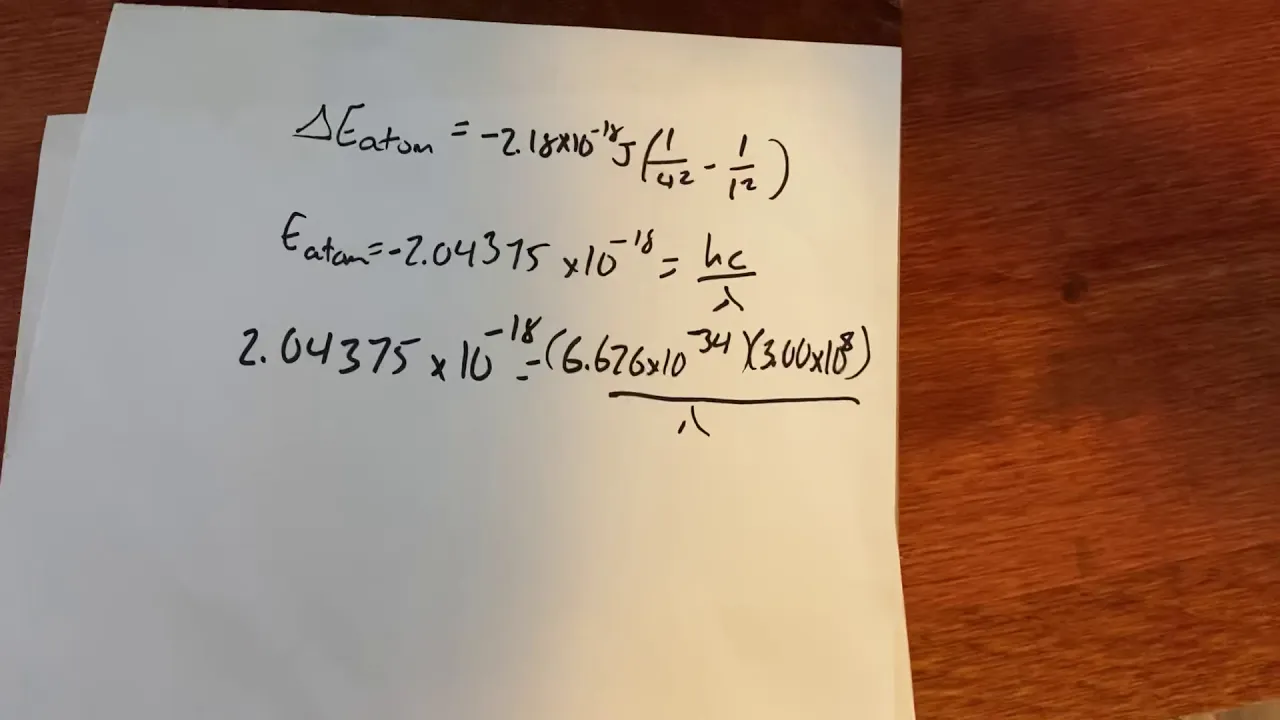 ΔEatom = -2.18×10^-18 J (1/4² - 1/1²)
Eatom = -2.04375 ×10^-18 = hc/λ
2.04375 ×10^-18 = (6.626×10^-34)(3.00×10^8)/λ